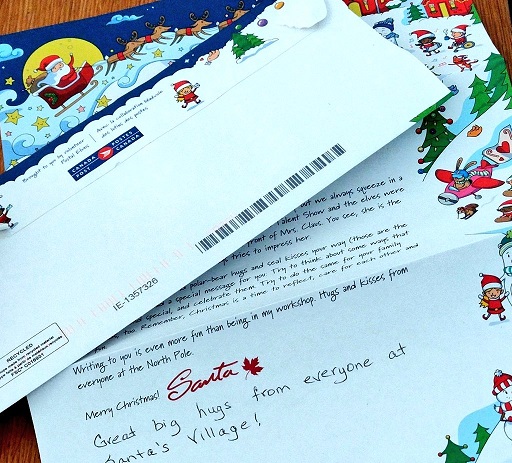 Brought to you by volunteer
Postal Elves!
Avec la collaboration bénévole
des lutins des postes
CANADA POST
POSTES CANADA
IE-1357326
RECYCLED
but we always squeeze in a
Talent Show and the elves were
front of Mrs. Claus. You see, she is the
tries to impress her.
polar-bear hugs and seal kisses your way (those are the
a special message for you. Try to think about some ways that
special, and celebrate them. Try to do the same for your family
too. Remember, Christmas is a time to reflect, care for each other and
Writing to you is even more fun than being in my workshop. Hugs and kisses from
everyone at the North Pole.
Merry Christmas!
Santa
Great big hugs from everyone at
Santa's Village!